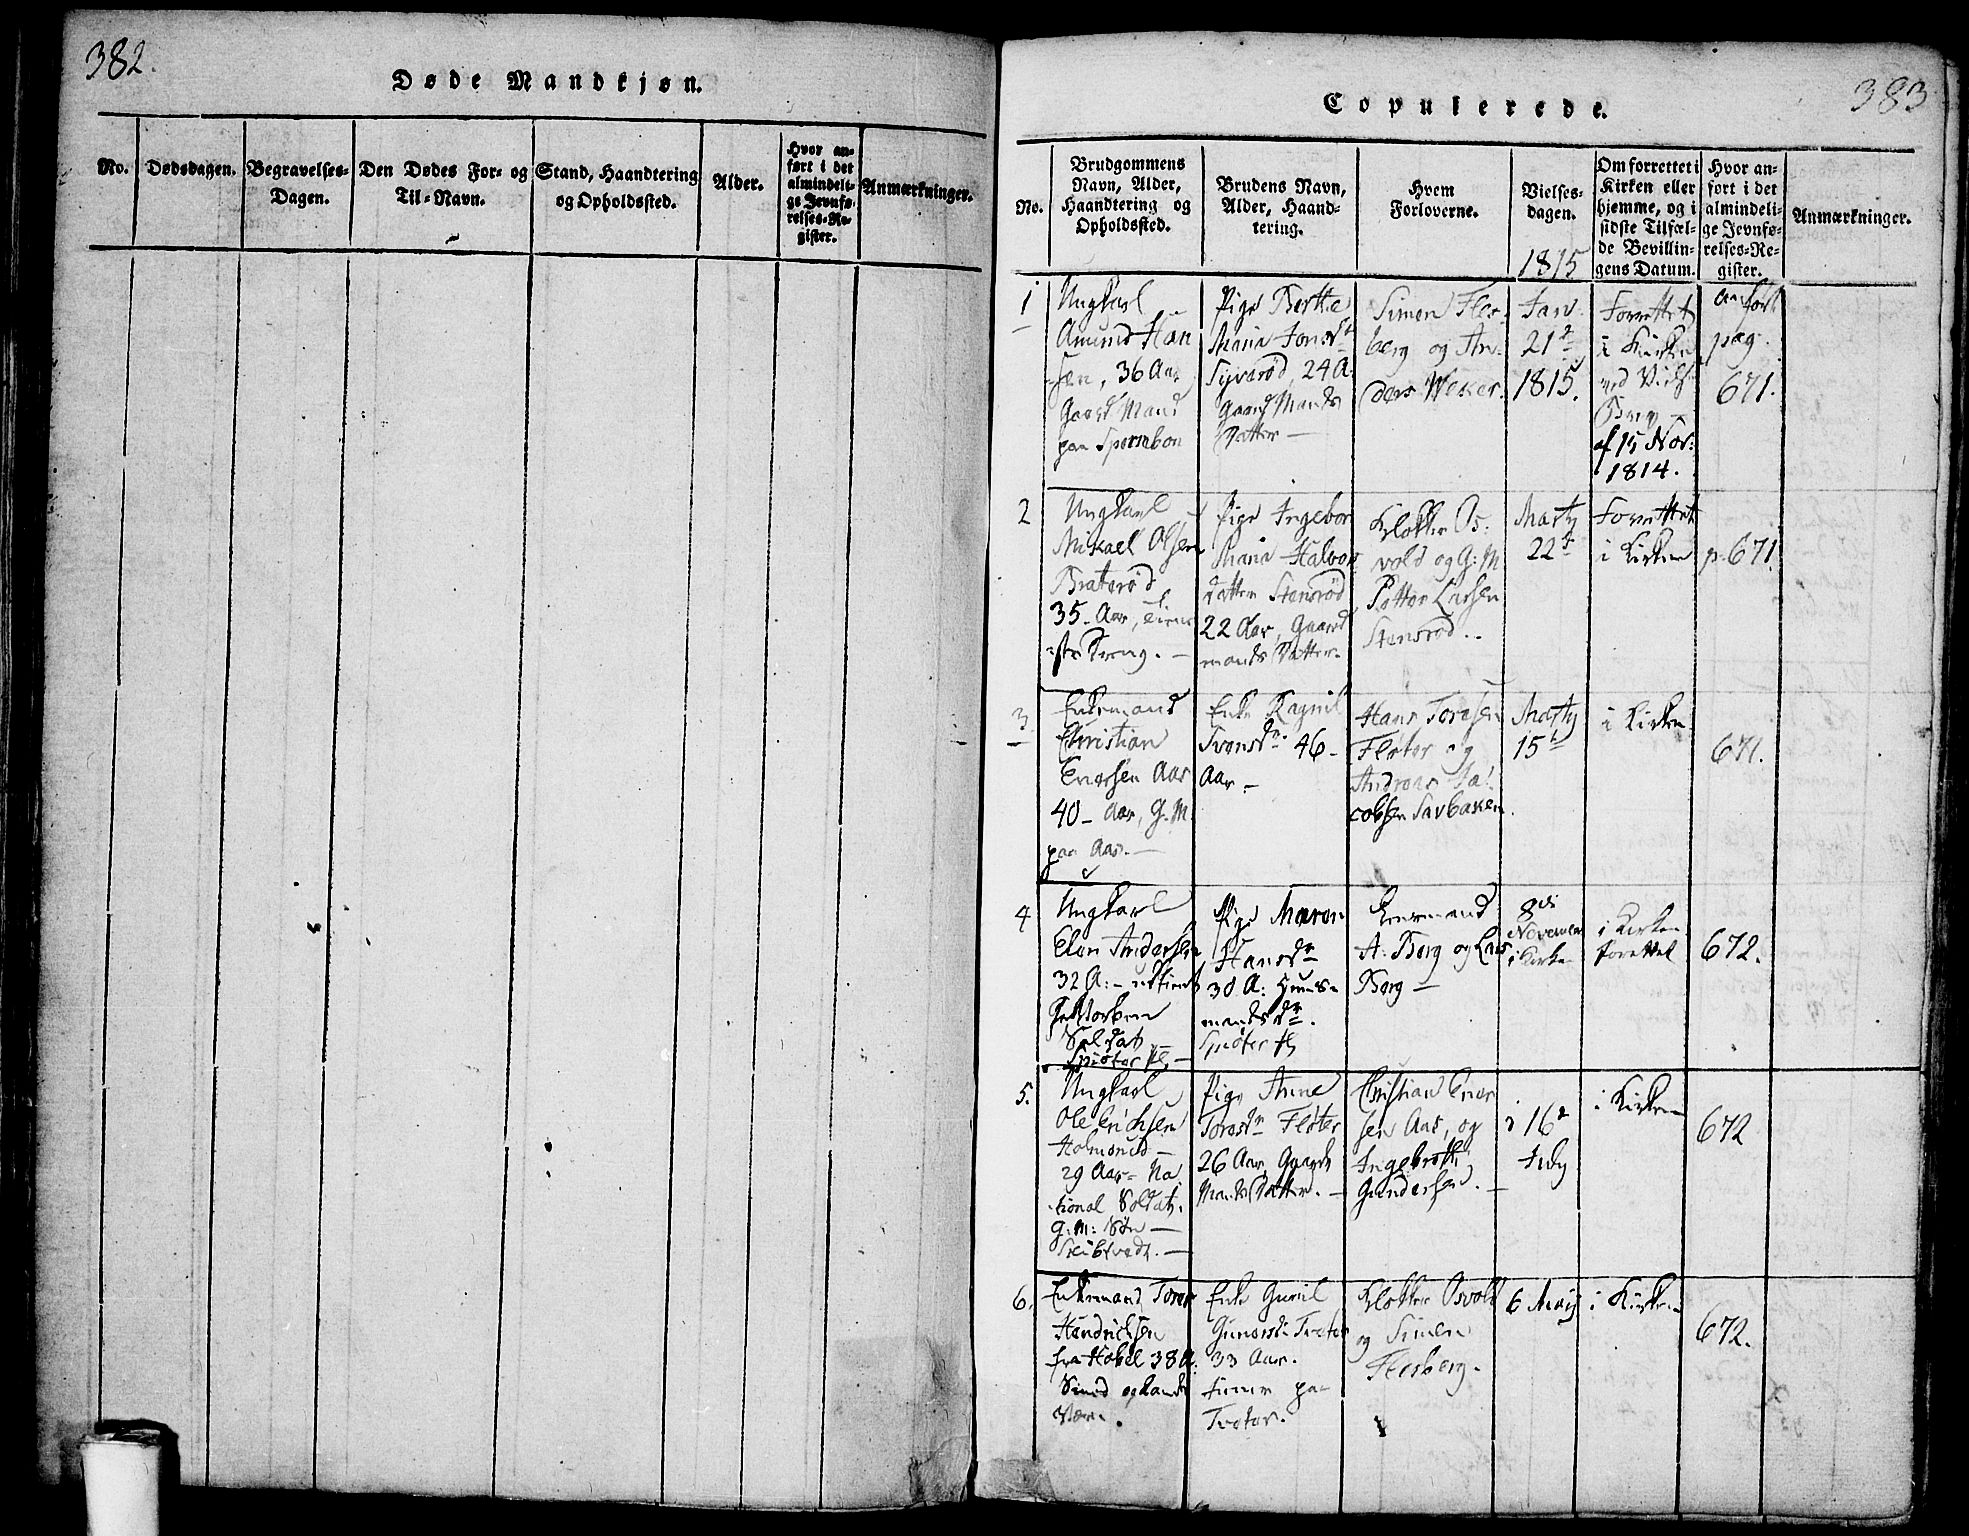 382.
Døde Mandkjøn.
No.
Dødsdagen.
Begravelses-
Dagen.
Den Dødes For- og
Til-Navn.
Stand, Haandtering
og Opholdssted.
Alder.
Hvor an-
ført i det
almindeli-
ge Jevnfø-
relses-Re-
gister.
Anmærkninger.
383
Copulerede.
No.
Brudgommens
Navn, Alder,
Haandtering og
Opholdssted.
Brudens Navn,
Alder, Haand-
tering.
Hvem
Forloverne.
Vielses-
dagen.
1815
Om forrettet i
Kirken eller
hjemme, og i
sidste Tilfæl-
de Bevillin-
gens Datum.
Hvor an-
ført i det
almindeli-
ge Jevnfø-
relses-Re-
gister.
Anmærkninger.
1
Ungkarl
Amund Han
sen, 36 Aar
Gaard Mand
paa
Pige Berthe
Maria
24 A:
Gaard Mands
Datter —
Simen Fles-
berg og An-
ders
Jan
21
1815.
Forrettet
i Kirken
af 15 Nov:
1814.
anført
pag.
671.
2
Ungkarl
Mikael Olsen
Braterød
35- Aar,
Pige Ingebor
Maria Halvor
datter Stensrød
22 Aar, Gaard
mands Datter.
Klokker Os-
vold og G: M
Petter Larsen
Stensrød..
Marty
22
Forrettet
i Kirken
p. 671.
3
Enkemand
Christian
Enersen Aas
40- Aar, G. M.
paa Aas.—
Enke Ragnil
46-
Aar.-
Hans Toresen
Fløter og
Andreas Ja-
cobsen Savbaken.
Marty
15
i Kirken
671.
4
Ungkarl
Elon Andersen
32 A:-
Soldat —
Pige Maren
Hansdr
30 A: Huus-
mands dr.
A: Berg og Lars
Berg —
8
November
i Kirke
i Kirken
forettet
672.
5.
Ungkarl
Ole Erichsen
Holmsrud —
29 Aar- Na
tional Soldat.
G. M: Søn —
Skibtvedt. —
Pige Anne
Toresdr Fløter
26 Aar, Gaard
Mands Datter. —
Christian Ener
sen Aas, og
Ingebrettt
Gundersen. —
16
July
i Kirken
672
6.
Enkemand Torer
Hendrichsen
fra Hobel 38 A:
Smed og
Enke Gunil
33 Aar.
Klokker Osvold
og Simen
Flesberg.
6 Maij
i Kirken
672.